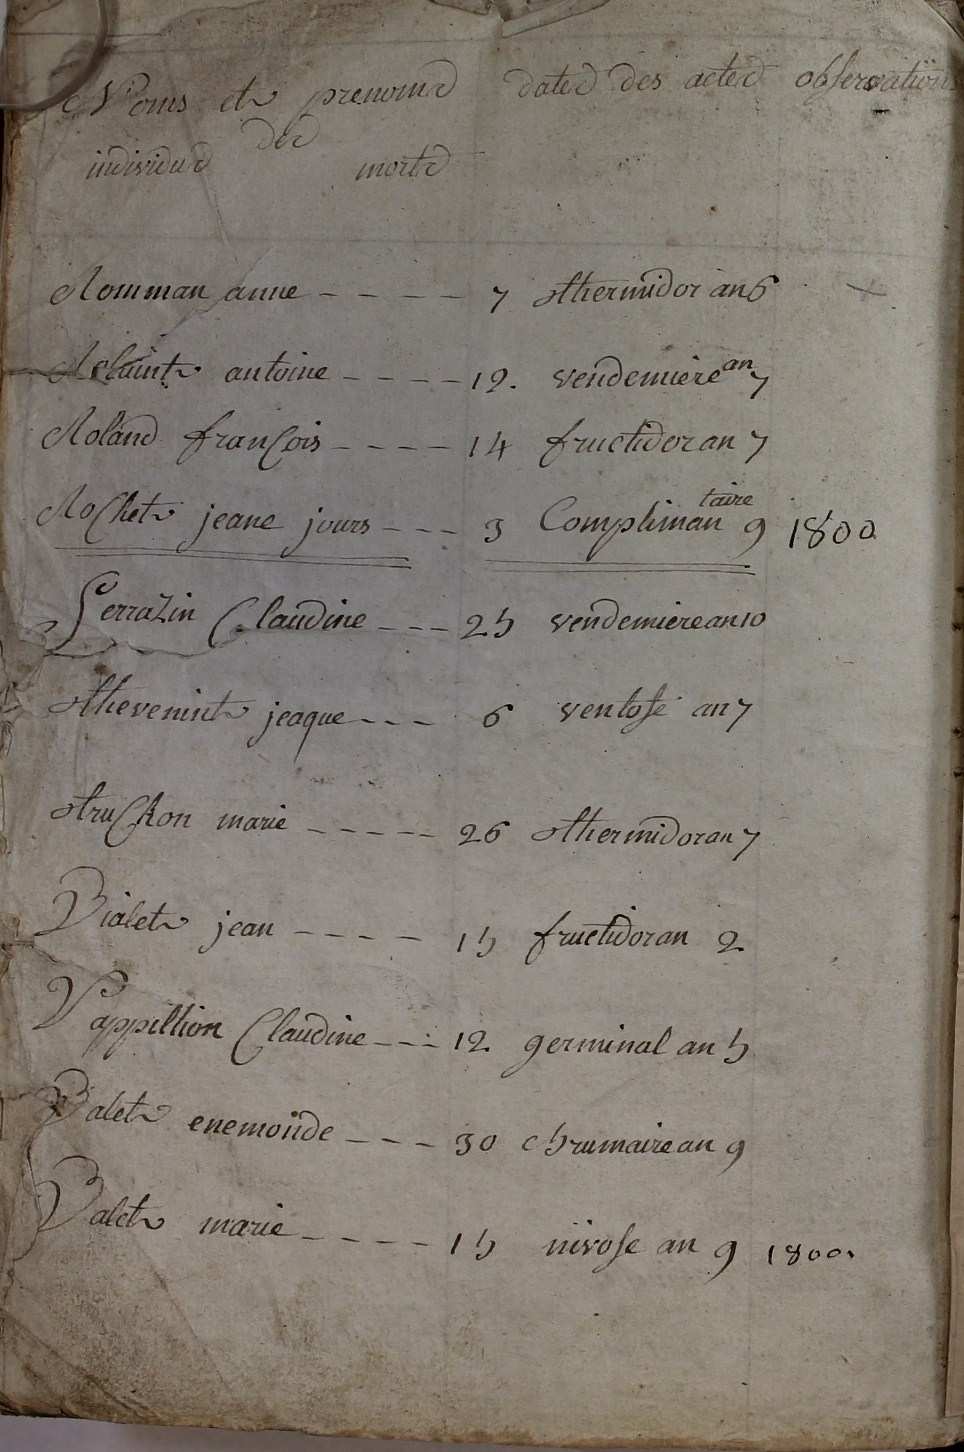 Noms et prenoms dates des actes observations
des
individus morts
Romman anne - - - - - 7 thermidor an 6 ×
antoine - - - - 12. vendemiere an 7
Roland françois - - - - 14 fructidor an 7
Rochet jeane jours - - - 3 Complimantaire 9 1800
Serrazin Claudine - - - 25 vendemiere an 10
thevenint jeaque - - - 6 ventose an 7
truchon marie - - - - - 26 thermidor an 7
Vialet jean - - - - 15 fructidor an 2
Vappillion Claudine - - - 12 germinal an 5
Valet enemonde - - - 30 brumaire an 9
Valet marie - - - - - 15 nivose an 9 1800.